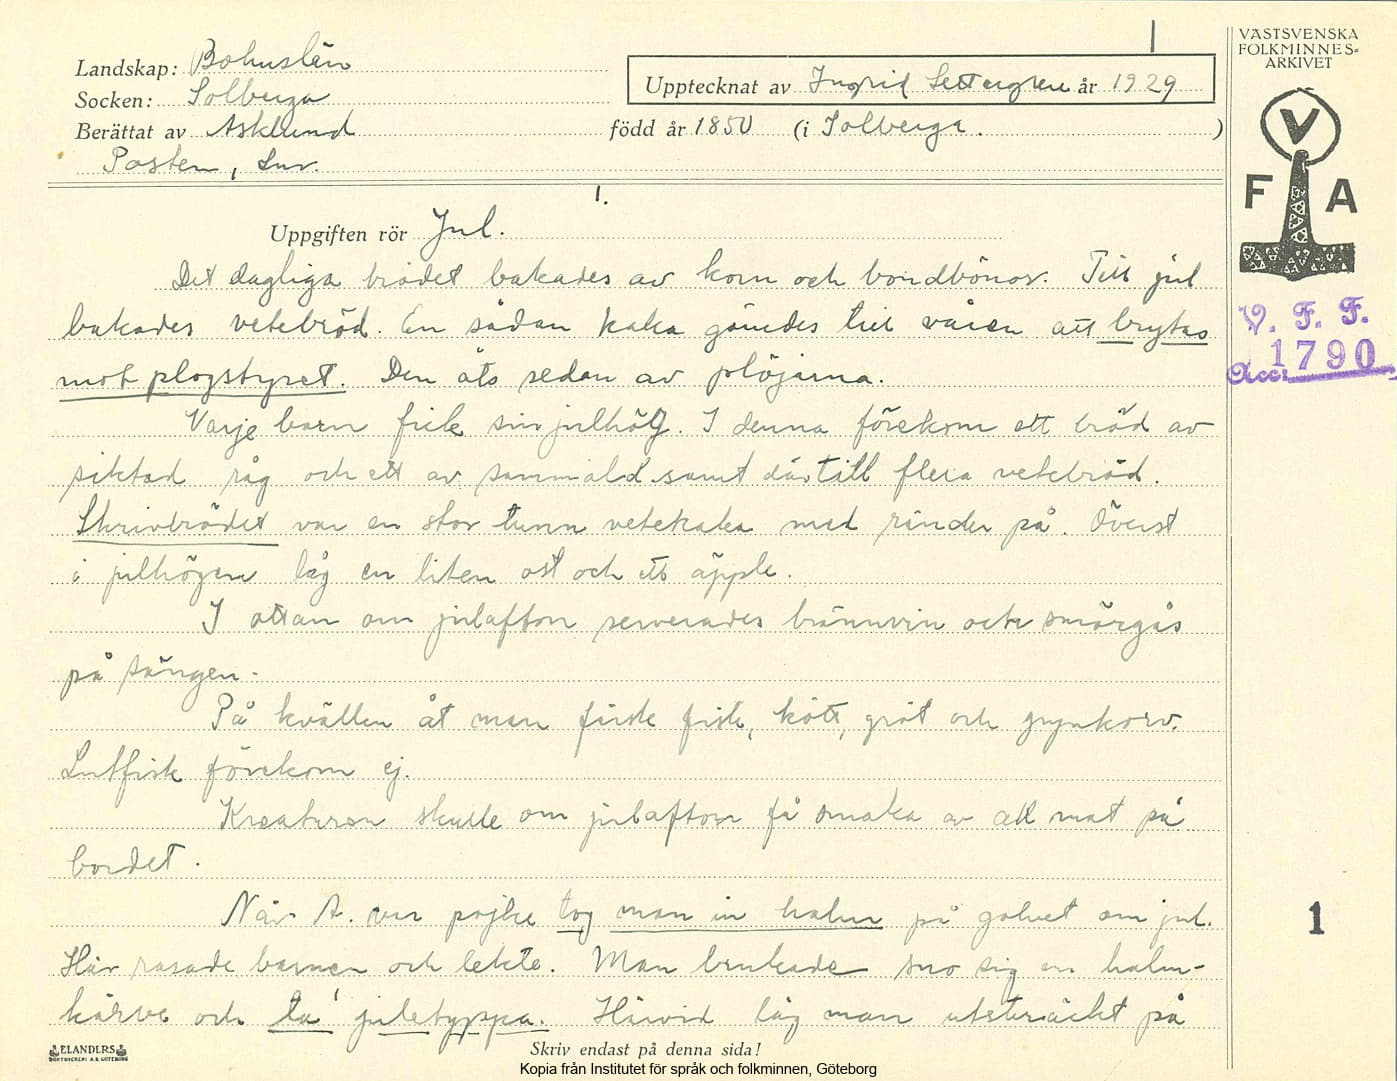 1
VÄSTSVENSKA
FOLKMINNES-
ARKIVET
Landskap: Bohuslän
Upptecknat av Ingrid Settergren år 1929
Socken: Solberga
Berättat av Asklund född år 1850 (i Solberga.)
Posten, Sur.
V
F A
1.
Uppgiften rör Jul.
Det dagliga brödet bakades av korn och bondbönor. Till jul
bakades vetebröd. En sådan kaka gömdes till våren att brytas
mot plogstyret. Den åts sedan av plöjarna.
V. F. F.
Acc. 1790
Varje barn fick sin julhög. I denna förekom ett bröd av
siktad råg och ett av sammald samt därtill flera vetebröd.
Skrivbrödet var en stor tunn vetekaka med ränder på. Överst
i julhögen låg en liten ost och ett äpple.
I ottan om julafton serverades brännvin och smörgås
på sängen.
På kvällen åt man färsk fisk, kött, gröt och grynkorv.
Lutfisk förekom ej.
Kreaturen skulle om julafton få smaka av all mat på
bordet.
När A. var pojke tog man in halm på golvet om jul.
1
Här rasade barnen och lekte. Man brukade sno sig en halm-
kärve och ta' juletyppa. Härvid låg man utsträckt på
ELANDERS
BOKTRYCKERI A.B. GÖTEBORG
Skriv endast på denna sida!
Kopia från Institutet för språk och folkminnen, Göteborg